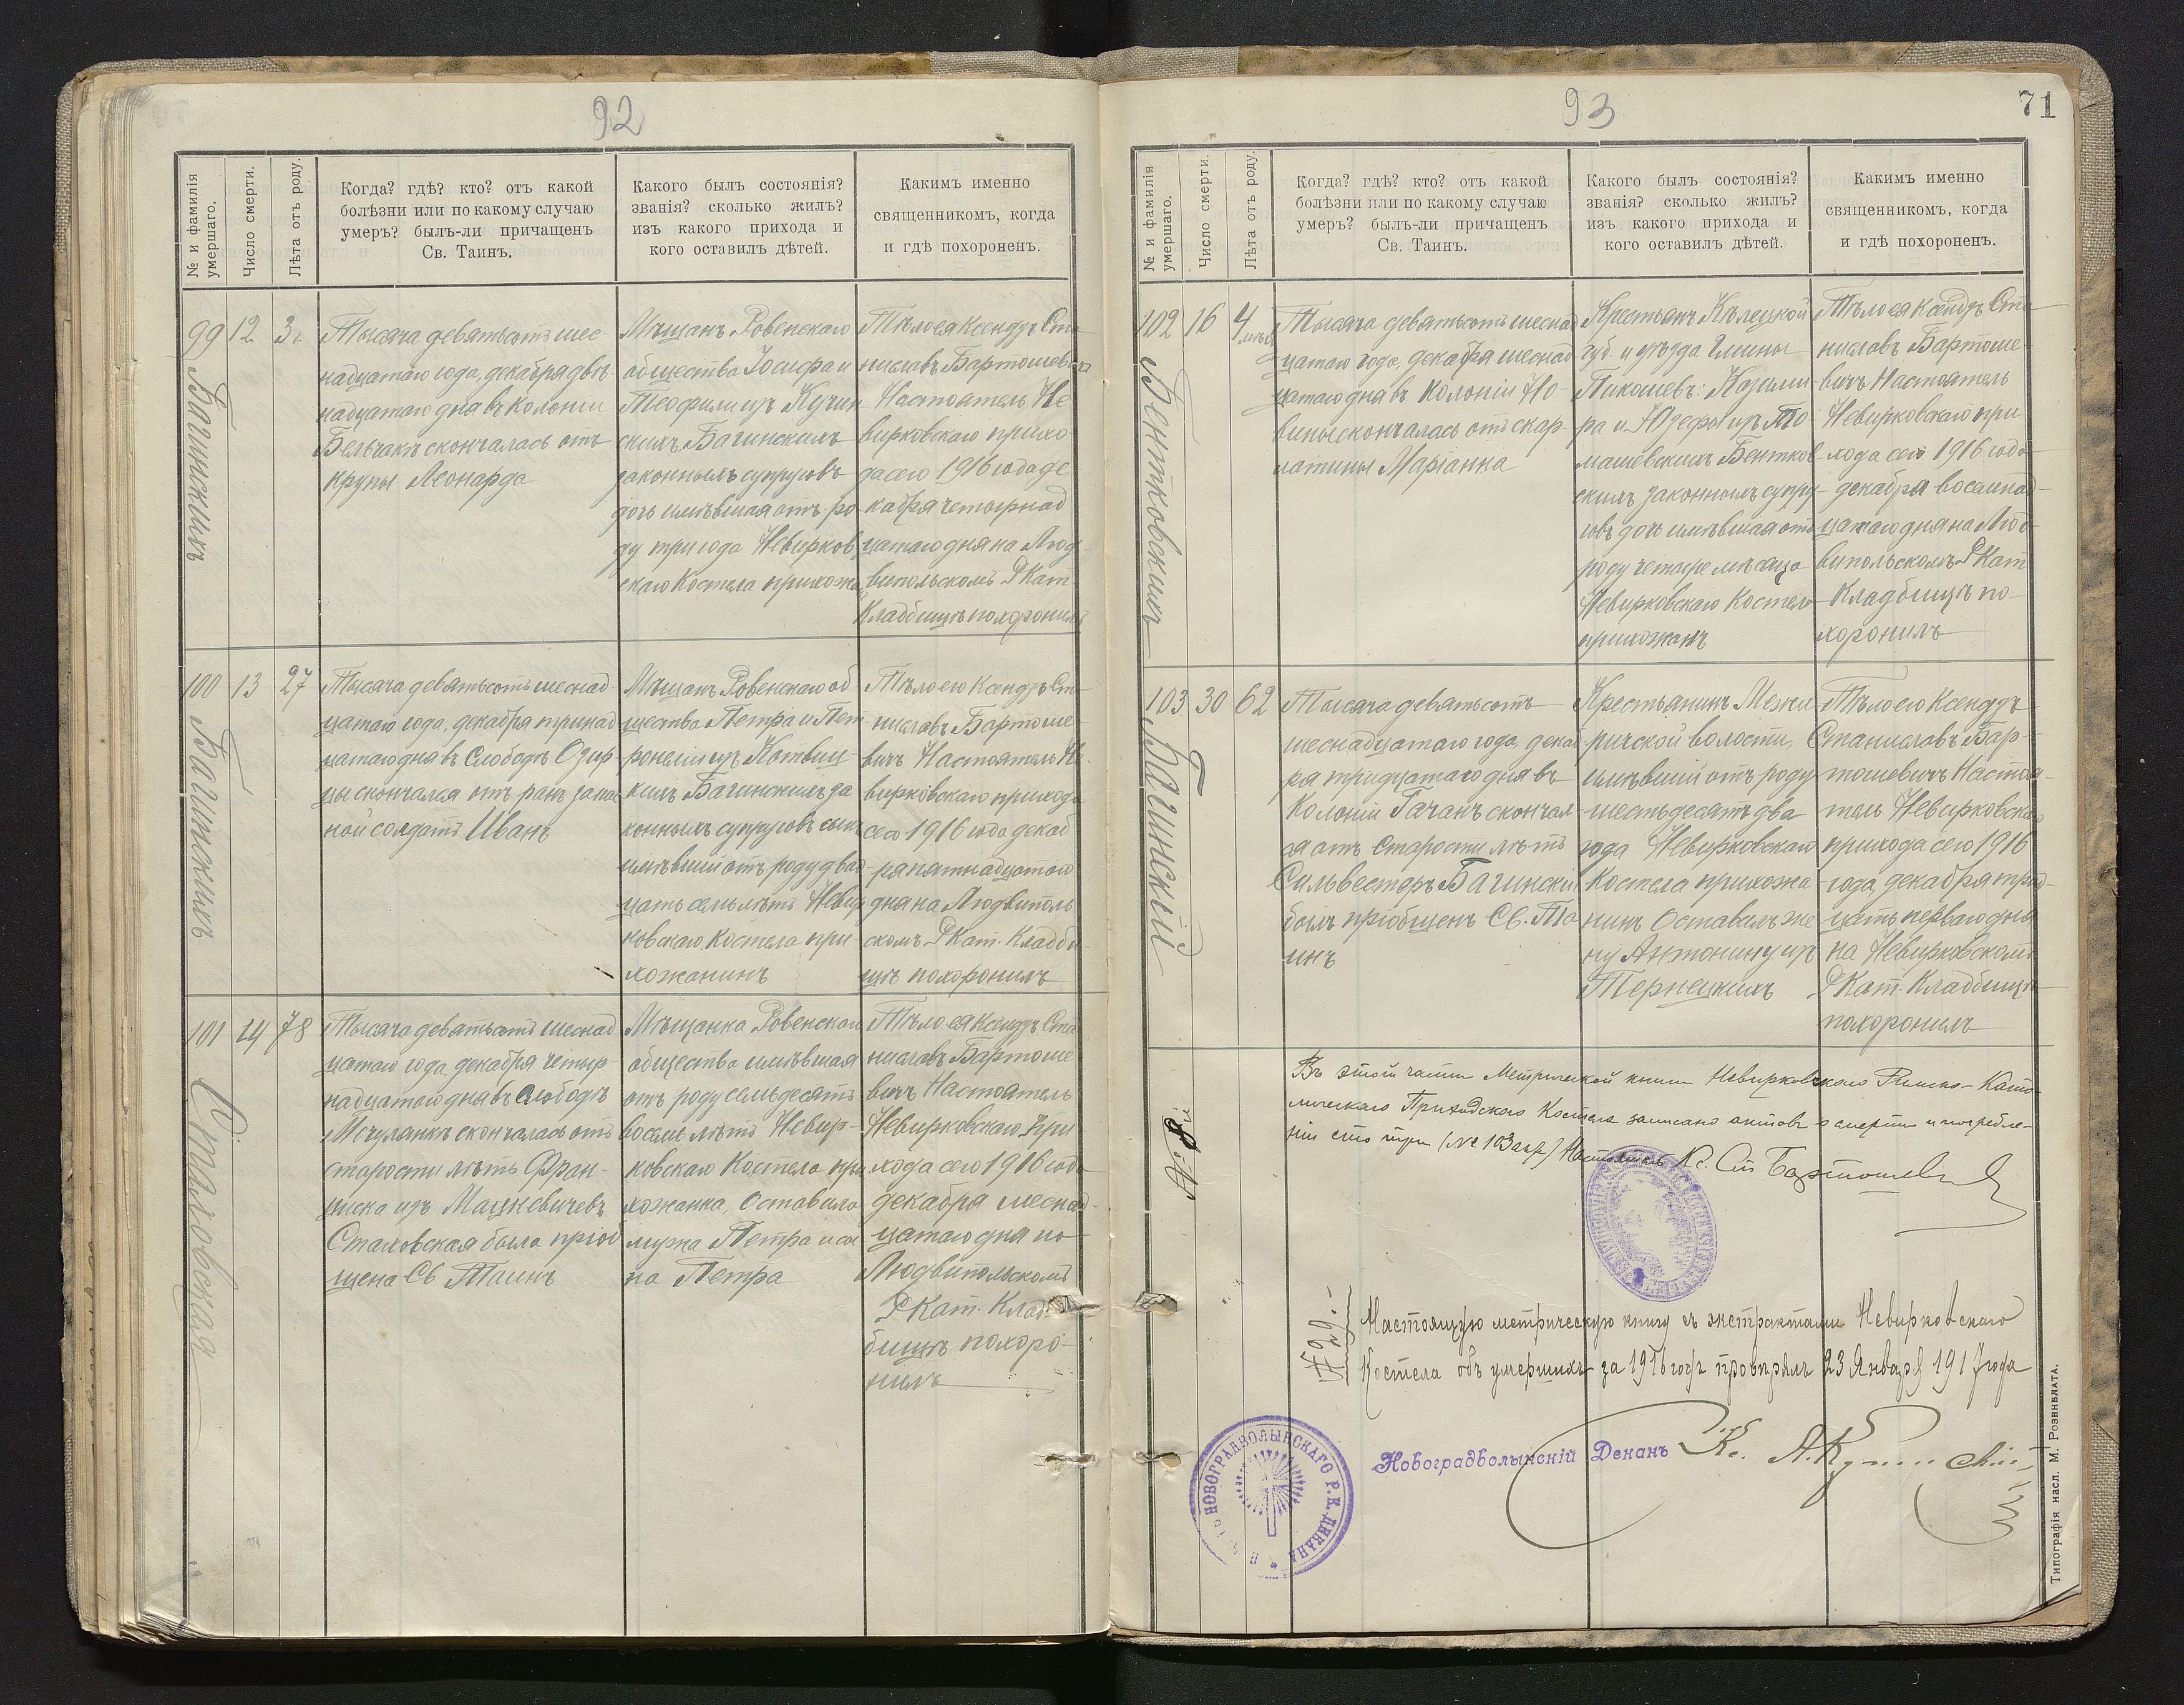 92
№ и фамилія умершаго.
Число смерти.
Лѣта отъ роду.
Когда? гдѣ? кто? отъ какой
болѣзни или по какому случаю
умеръ? былъ-ли причащенъ
Св. Таинъ.
Какого былъ состоянія?
званія? сколько жилъ?
изъ какого прихода и
кого оставилъ дѣтей.
Какимъ именно
священникомъ, когда
и гдѣ похороненъ.
99
Багинскихъ
12
3 г.
Тысяча девятьсотъ шес
надцатаго года, декабря двѣ
надцатаго дня въ колоніи
Бельчакъ скончалась отъ
крупы Леонарда
Мѣщанъ Ровенскаго
общества Іосифа и
Теофили изъ Кучин
скихъ Багинскихъ
законныхъ супруговъ
дочь имѣвшая отъ ро
ду три года Невирков
скаго Костела прихожа
Тѣло ея Ксендзъ Ста
ниславъ Бартошевичъ
Настоятель Не
вирковскаго прихо
да сего 1916 года де
кабря четырнад
цатаго дня на Люд
випольскомъ Р Кат
Кладбищѣ похоронилъ
100
Багинскихъ
13
27
Тысяча девятьсотъ шеснад
цатаго года, декабря тринад
цатаго дня въ Слободѣ Озир
цы скончался отъ ранъ
ной солдатъ Иванъ
Мѣщанъ Ровенскаго об
щества Петра и Пет
ронелии изъ Котвиц
кихъ Багинскихъ за
конныхъ супруговъ сынъ
имѣвшій отъ роду двад
цать семь лѣтъ Невир
ковскаго Костела при
хожанинъ
Тѣло его Ксендзъ Ста
ниславъ Бартоше
вичъ Настоятель Не
вирковскаго прихода
сего 1916 года декаб
ря пятнадцатаго
дня на Людвиполь
скомъ Р Кат. Кладби
щѣ похоронилъ
101
Стаховская
14
78
Тысяча девятьсотъ шеснад
цатаго года, декабря четыр
надцатаго дня въ Слободѣ
Мочулянкѣ скончалась отъ
старости лѣтъ Фран-
циска изъ Мацкевичевъ
Стаховская была пріоб
щена Св Таинъ
Мѣщанка Ровенскаго
общества имѣвшая
отъ роду семьдесятъ
восемь лѣтъ Невир-
ковскаго Костела при
хожанка, Оставила
мужа Петра и сы
на Петра
Тѣло ея Ксендзъ Ста
ниславъ Бартоше
вичъ Настоятель
Невирковскаго При
хода сего 1916 года
декабря шеснад-
цатаго дня на
Людвипольскомъ
Р Кат. Клад-
бищѣ похоро-
нилъ
93
71
№ и фамилія умершаго.
Число смерти.
Лѣта отъ роду.
Когда? гдѣ? кто? отъ какой
болѣзни или по какому случаю
умеръ? былъ-ли причащенъ
Св. Таинъ.
Какого былъ состоянія?
званія? сколько жилъ?
изъ какого прихода и
кого оставилъ дѣтей.
Какимъ именно
священникомъ, когда
и гдѣ похороненъ.
102
Бентковскихъ
16
4 мѣс
Тысяча девятьсотъ шеснад
цатаго года, декабря шеснад
цатаго дня въ Колоніи Но-
вины скончалась отъ скар
латины Маріанна
Крестьянъ Кѣлецкой
губ. и уѣзда Гмины
Пикошевъ: Казими
ра и Юзефы изъ То
машевскихъ Бентков
скихъ законныхъ супру
говъ дочь имѣвшая отъ
роду четыре мѣсяца
Невирковскаго Костела
прихожанъ
Тѣло ея Ксендзъ Ста
ниславъ Бартоше-
вичъ Настоятель
Невирковскаго при
хода сего 1916 года
декабря восемнад-
цатаго дня на Люд-
випольскомъ Р Кат
Кладбищѣ по-
хоронилъ
103
Багинскій
30
62
Тысяча девятьсотъ
шеснадцатаго года, декаб
ря тридцатаго дня въ
Колоніи Гачанъ скончал
ся отъ Старости лѣтъ
Сильвестръ Багински
былъ пріобщенъ Св. Та
инъ
Крестьянинъ Межи
ричской волости,
имѣвшій отъ роду
шестьдесятъ два
года Невирковскаго
Костела прихожа
нинъ Оставилъ же
ну Антонину изъ
Тернецкихъ
Тѣло его Ксендзъ
Станиславъ Бар-
тошевичъ Настоя-
тель Невирковска
прихода сего 1916
года, декабря трид-
цать перваго дня
на Невирковскомъ
Р Кат. Кладбищѣ
похоронилъ
Въ этой части Метрической книги Невирковскаго Римско-Като
лическаго Приходскаго Костела записано актовъ о смерти и погребе-
ніи сто три (№ 103) Настоятель Кс. Ст Бартошевичъ
№ 29.
Настоящую метрическую книгу съ экстрактами Невирковскаго
Костела объ умершихъ за 1916 годъ провѣрялъ 23 Января 1917 года
Новоградволынскій Деканъ Кс. А.
НОВОГРАДВОЛЫНСКАГО Р. К. ДЕКАНА
Типографія насл. М. Розенблата.